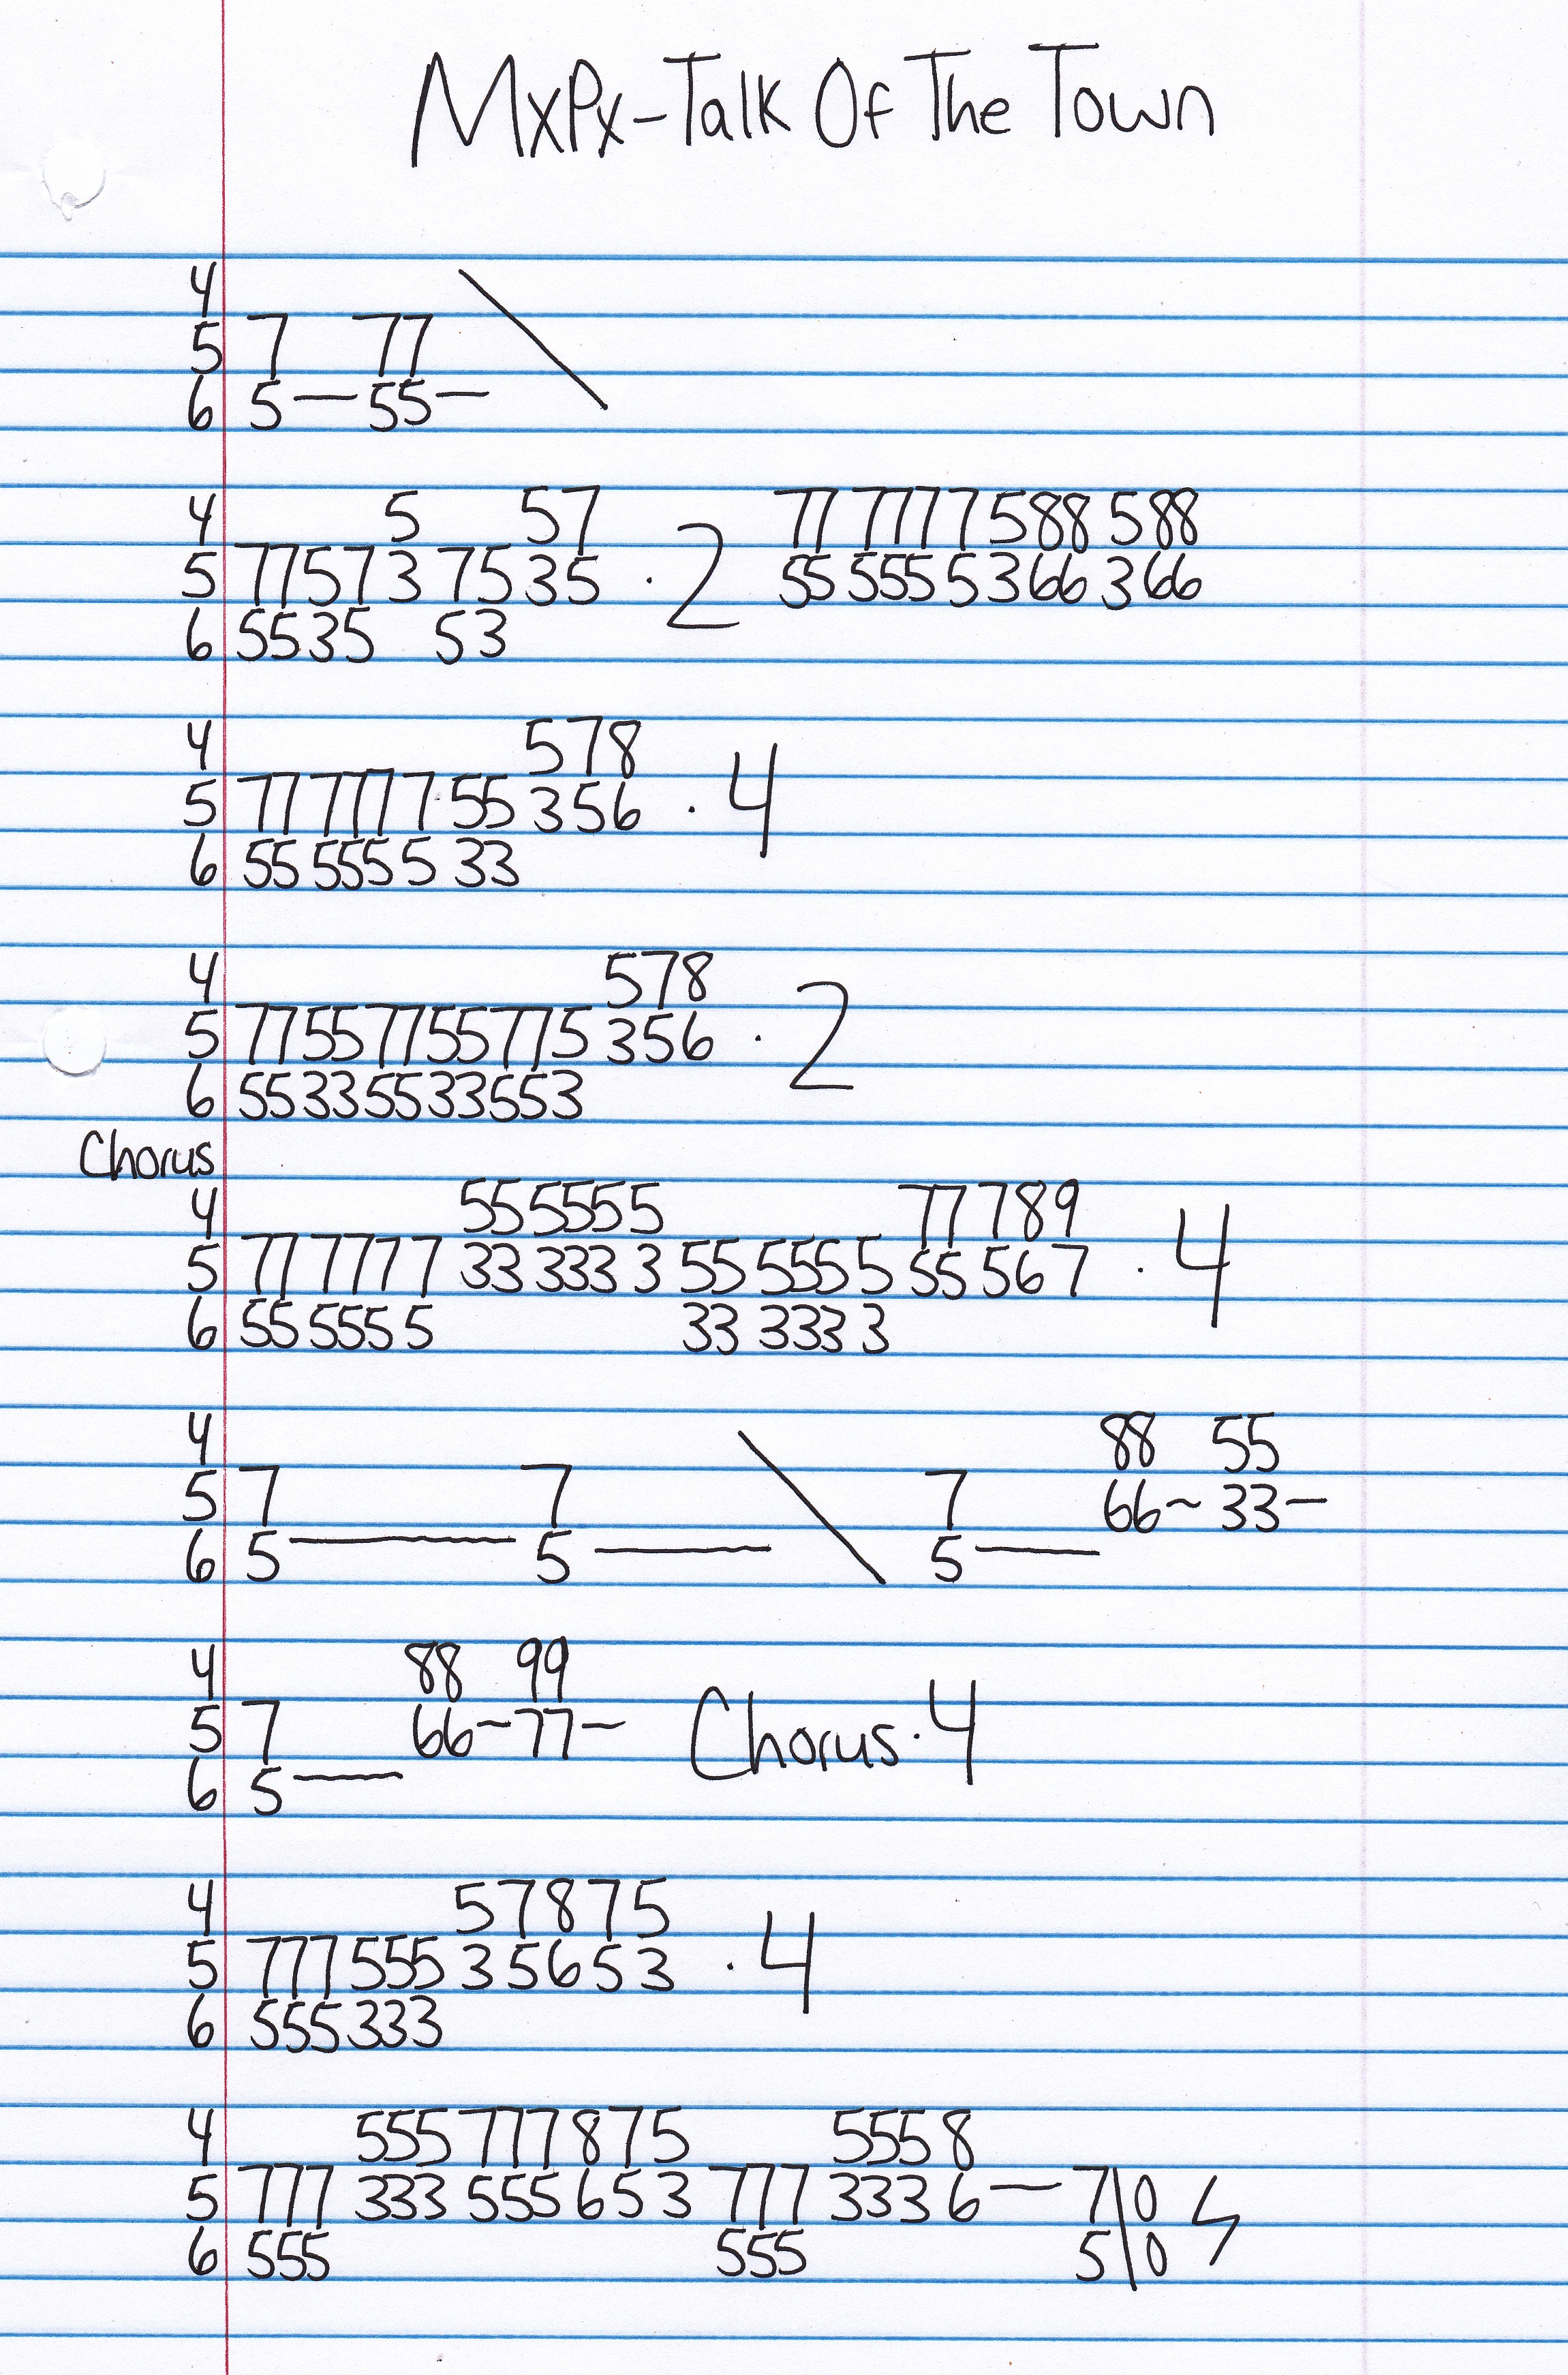 MxPx-Talk Of The Town
4
5 7 77
6 5—55—
4 5 57 77 7777588 588
5 77573 7535 .2 55 5555366 366
6 5535 53
4 578
5 77 7777 55 356 .4
6 55 5555 33
4 578
5 77557755775 356 .2
6 55335533553
Chorus
4 55 5555 77 789
5 77 7777 33 3333 55 5555 55 567 .4
6 55 5555 33 3333
4 88 55
5 7 7 7 66~33—
6 5—5— 5—
4 88 99
5 7 66~77~ Chorus.4
6 5—
4 57875
5 777555 35653 .4
6 555333
4 555777875 5558
5 777 333 555653 777 3336—7\0
6 555 555 5\0